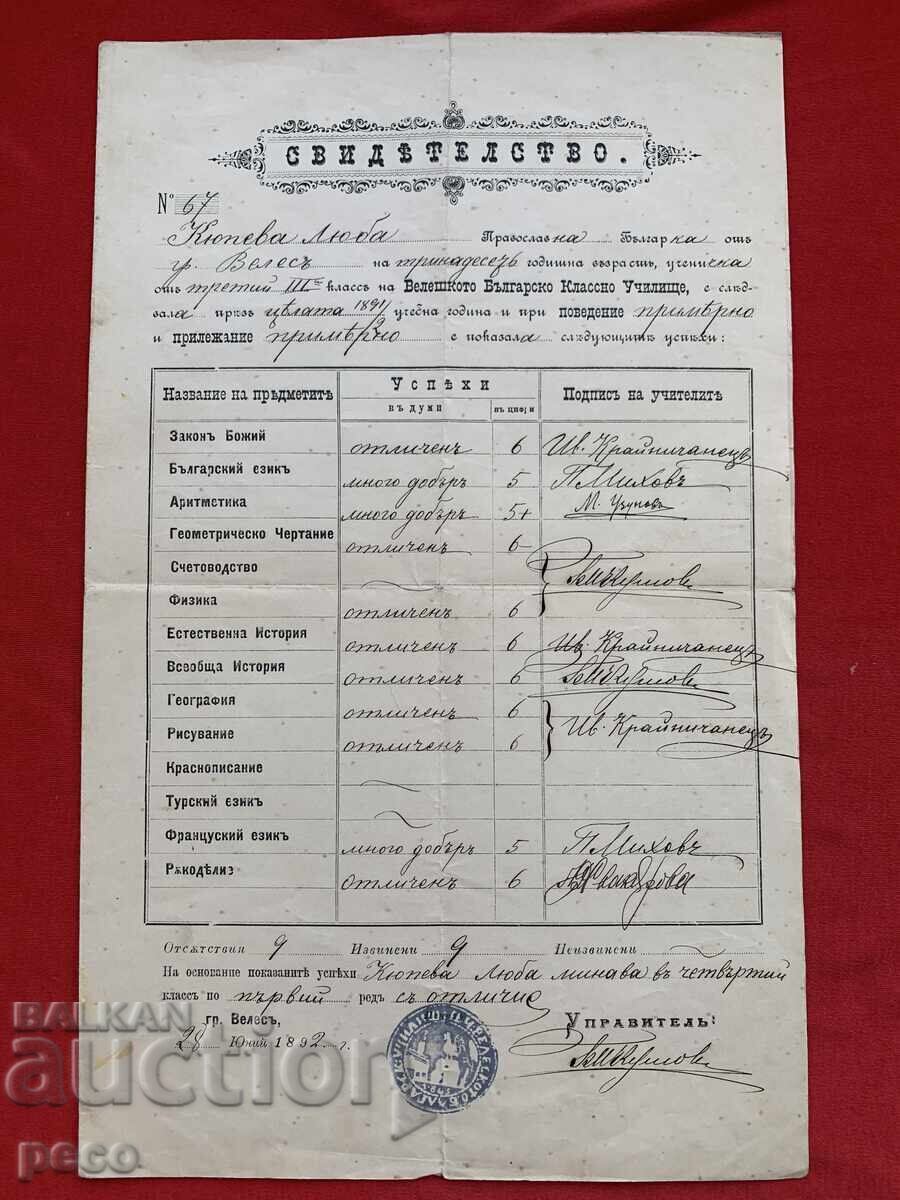 СВИДѢТЕЛСТВО.
№ 67
Кюпева Люба Православна Българка отъ
гр. Велесъ на тринадесетъ годишна възрасть, ученичка
отъ третий III классъ на Велешкото Българско Классно Училище, е слѣд-
вала прѣзъ цѣлата 1891/ учебна година и при поведение примѣрно
и прилежание примѣрно е показала слѣдующитѣ успѣхи:
Название на прѣдметитѣ Успѣхи Подпис на учителитѣ
въ думи въ цифри
Законъ Божий отличенъ 6 Ив. Крайничанецъ
Българский езикъ много добъръ 5 П. Миховъ
Аритметика много добъръ 5+ М.
Геометрическо Чертание отличенъ 6-
Счетоводство
Физика отличенъ 6
Естественна История отличенъ 6 Ив. Крайничанецъ
Всеобща История отличенъ 6
География отличенъ 6
Рисуване отличенъ 6 Ив. Крайничанецъ
Краснописание
Турский езикъ
Француский езикъ много добъръ 5 П. Миховъ
Рѫкодѣлиз отличенъ 6
Отсѫтствия 9 Извинени 9 Неизвинени
На основание показанитѣ успѣхи Кюпева Люба минава въ четвъртий
классъ по първий редъ съ отличие
гр. Велесъ, Управитель:
28 Юний 1892 г.
BALKAN
auction
peco